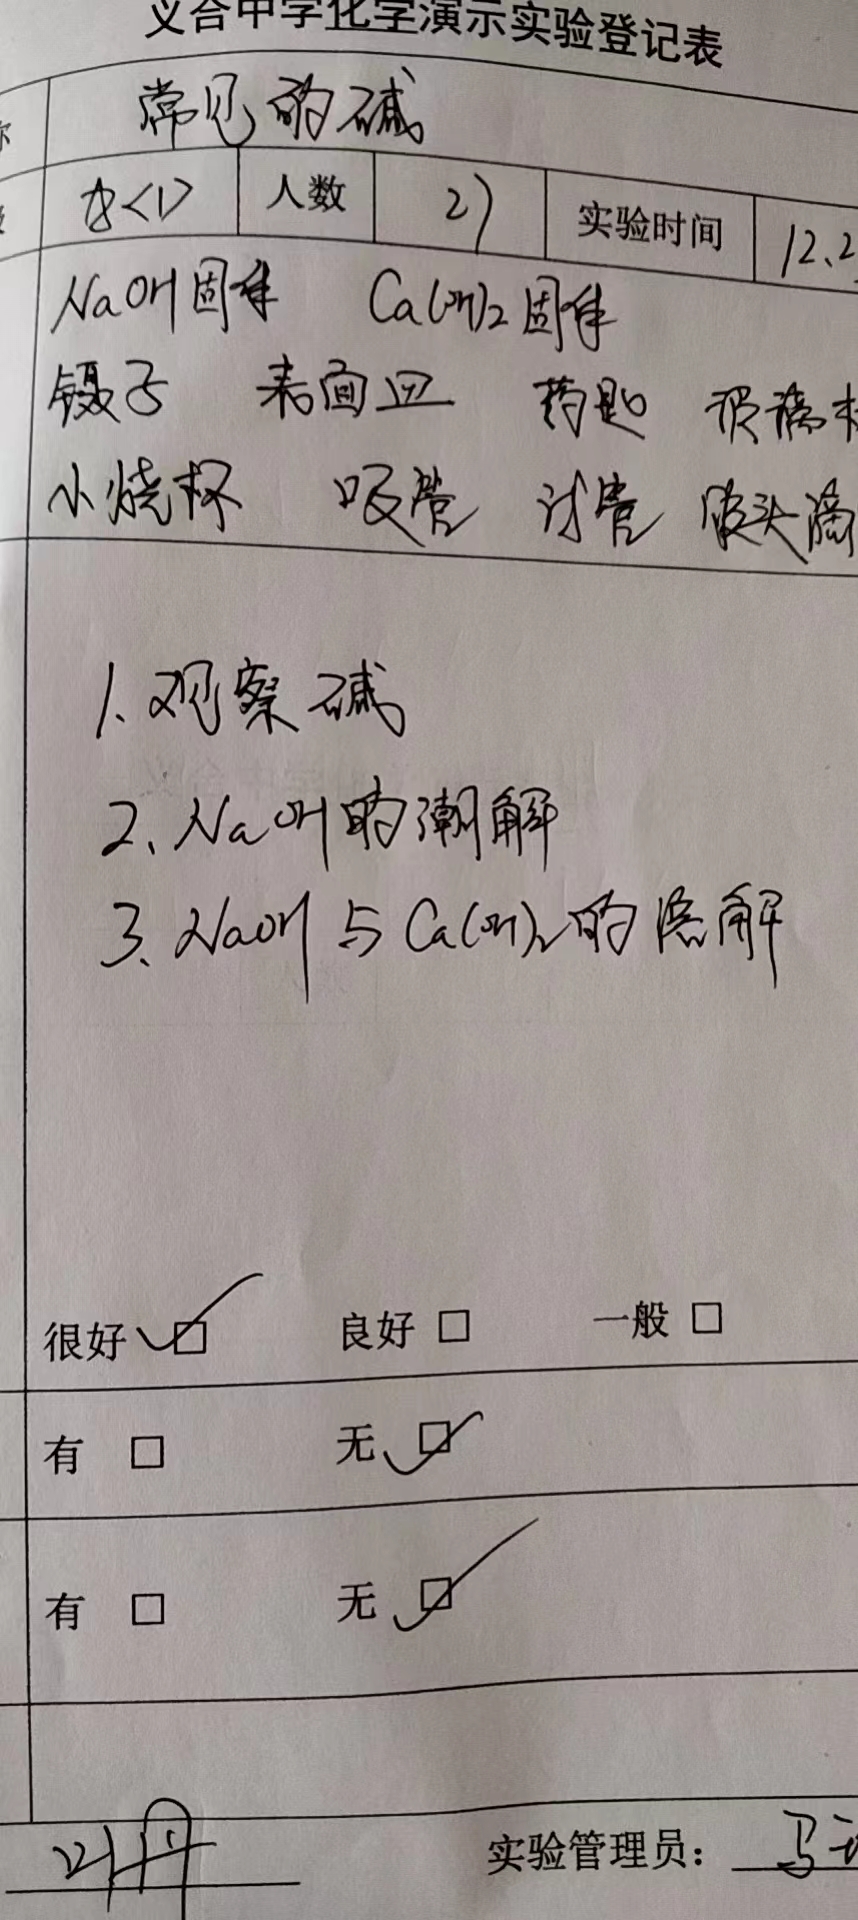 义合中学化学演示实验登记表
常见的碱
九<1> 人数 27 实验时间 12.2
NaOH固体 Ca(OH)2固体
镊子 表面皿 药匙 玻璃棒
小烧杯 吸管 试管 胶头滴
1. 观察碱
2. NaOH的潮解
3. NaOH与Ca(OH)2的溶解
很好 ☑ 良好 □ 一般 □
有 □ 无 ☑
有 □ 无 ☑
实验管理员: 马